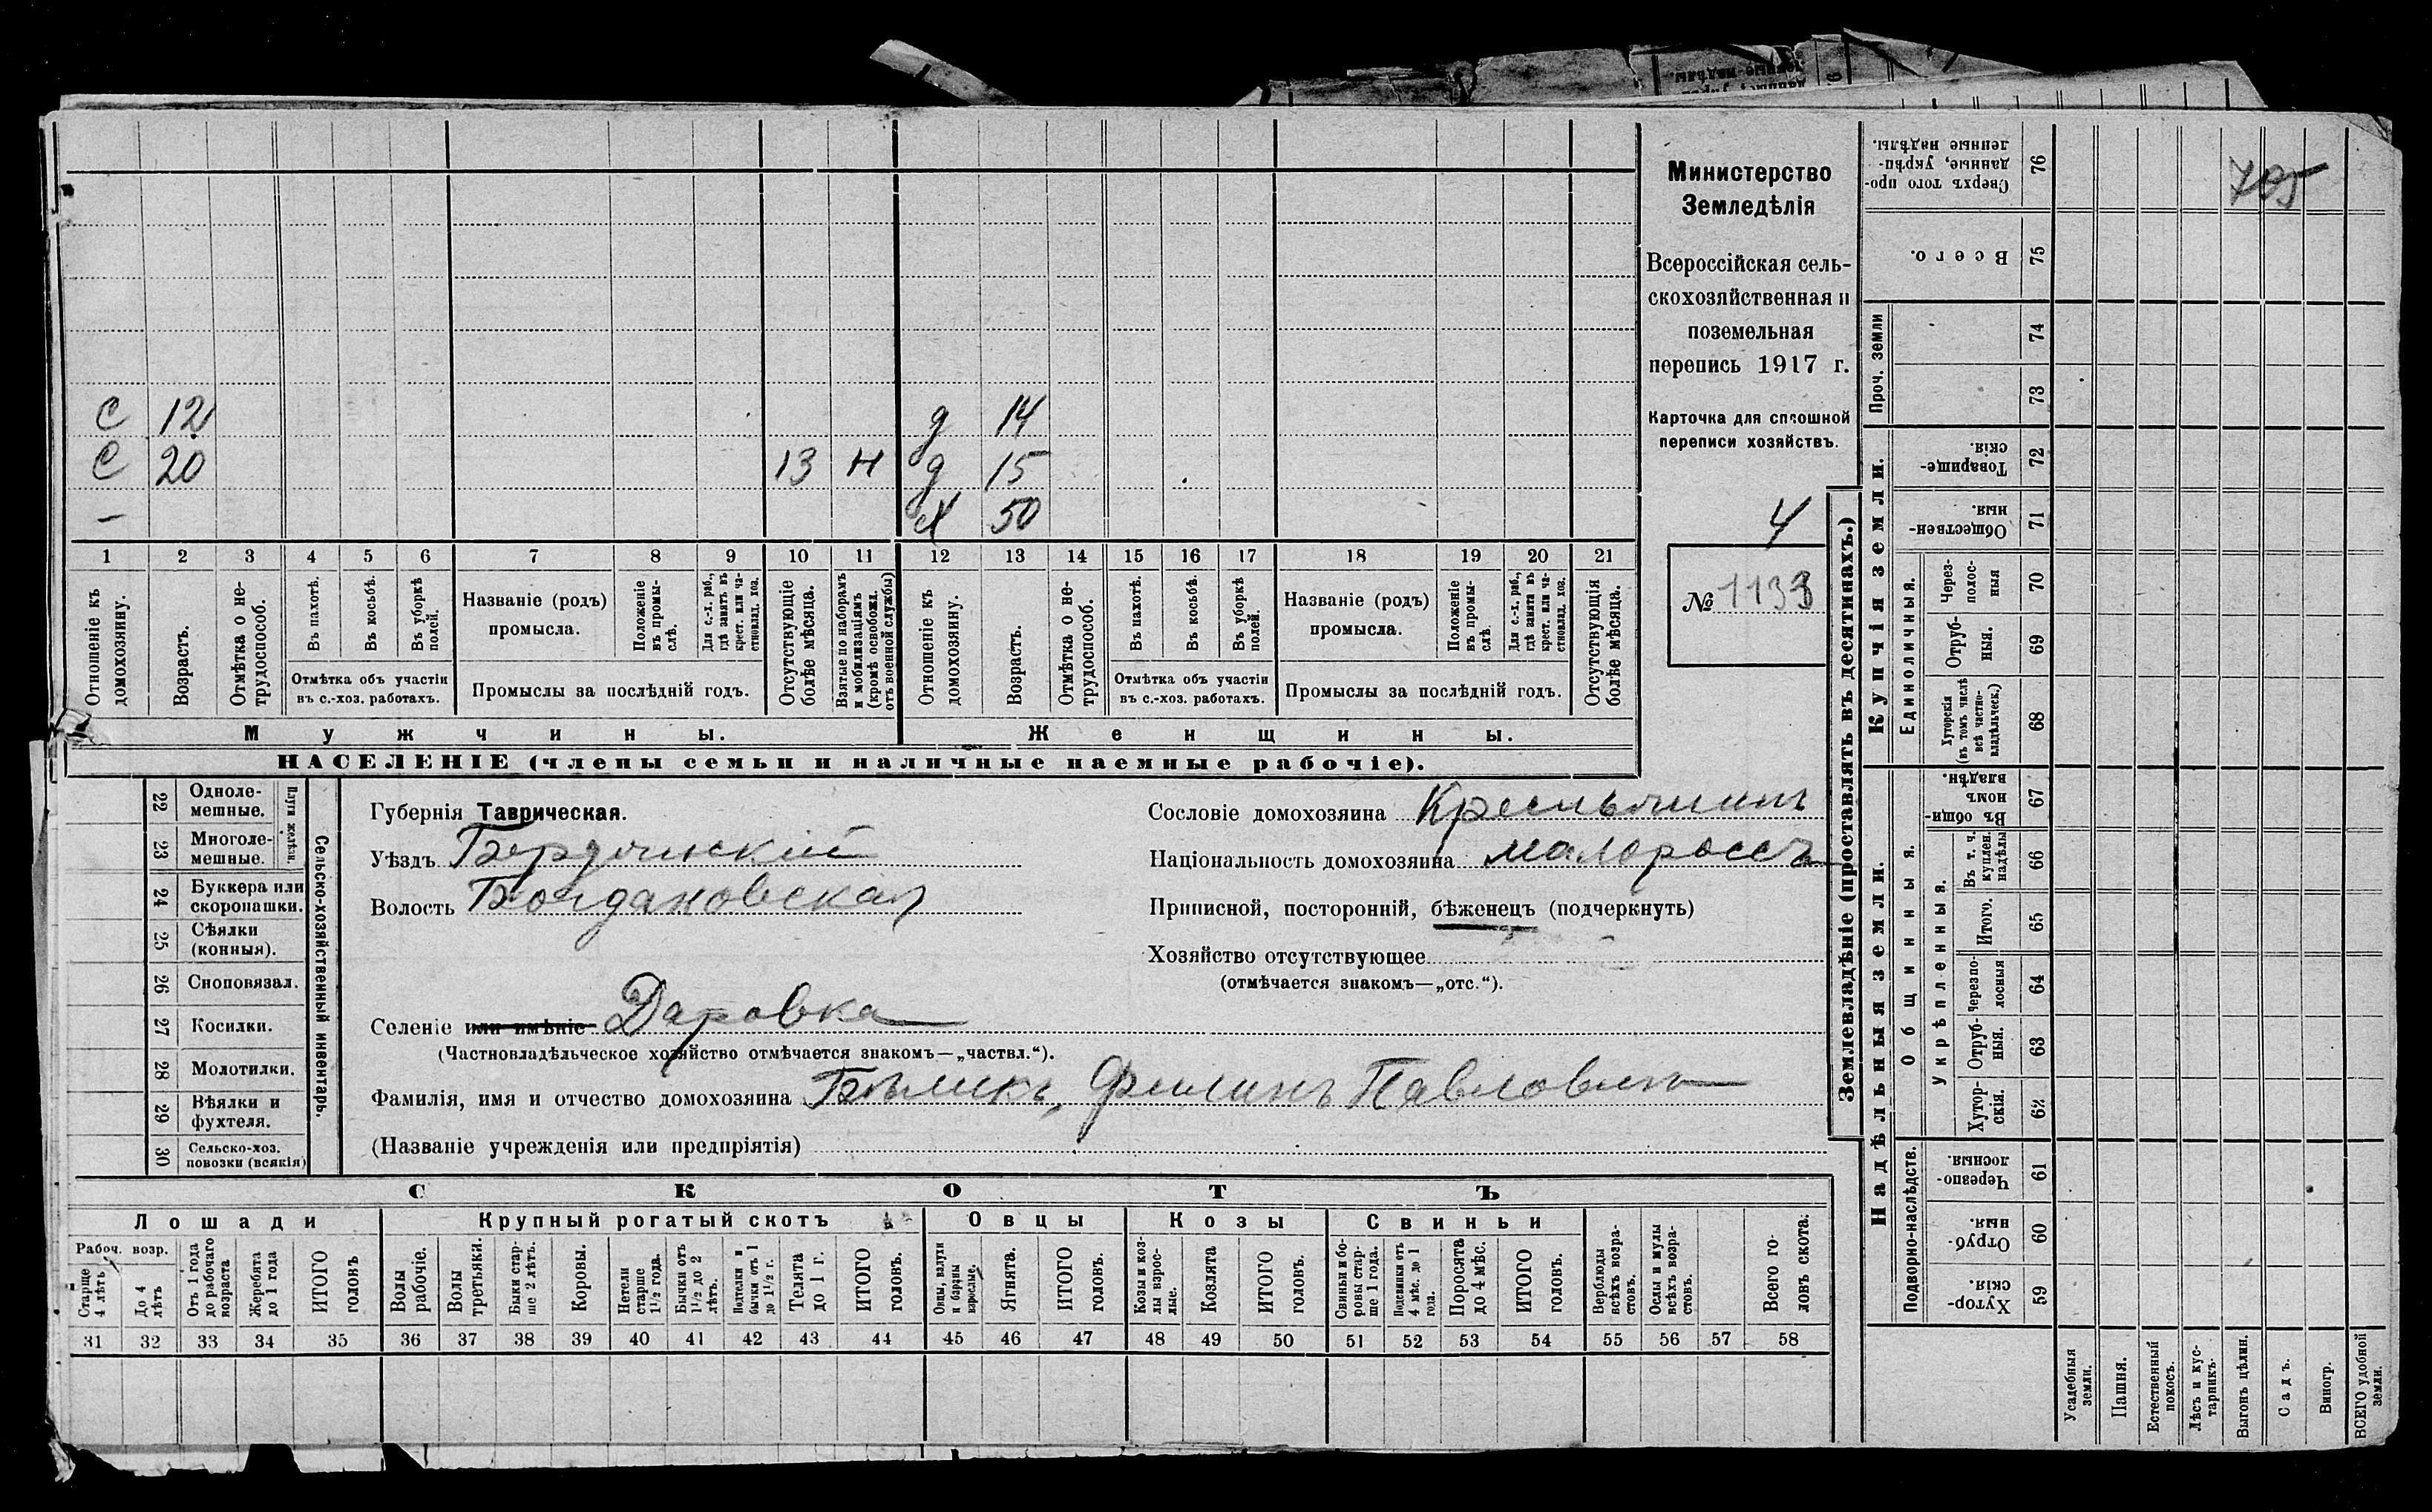 С 12 д 14
С 20 13 Н д 15
— Х 50
1 2 3 4 5 6 7 8 9 10 11 12 13 14 15 16 17 18 19 20 21
Отношеніе къ домохозяину.
Возрастъ.
Отмѣтка о не-
трудоспособ.
Въ пахотѣ.
Въ косьбѣ.
Въ уборкѣ
полей.
Отмѣтка объ участіи
въ с.-хоз. работахъ.
Названіе (родъ)
промысла.
Положеніе
въ промы-
слѣ.
Для с.-х. раб.,
гдѣ занятъ въ
крест. или ча-
стновлад. хоз.
Промыслы за послѣдній годъ.
Отсутствующіе
болѣе мѣсяца.
Взятые по наборамъ
и мобилизаціямъ
(кромѣ освобожд.
отъ военной службы)
Отношеніе къ
домохозяину.
Возрастъ.
Отмѣтка о не-
трудоспособ.
Въ пахотѣ.
Въ косьбѣ.
Въ уборкѣ
полей.
Отмѣтка объ участіи
въ с.-хоз. работахъ.
Названіе (родъ)
промысла.
Положеніе
въ промы-
слѣ.
Для с.-х. раб.,
гдѣ занята въ
крест. или ча-
стновлад. хоз.
Промыслы за послѣдній годъ.
Отсутствующія
болѣе мѣсяца.
Мужчины.
Женщины.
НАСЕЛЕНІЕ (члены семьи и наличные наемные рабочіе).
Министерство
Земледѣлія
Всероссійская сель-
скохозяйственная и
поземельная
перепись 1917 г.
Карточка для сплошной
переписи хозяйствъ.
4
№ 1133
22 Одноле-
мешные.
23 Многоле-
мешные.
Плуги желѣзн.
24 Буккера или
скоропашки.
25 Сѣялки
(конныя).
26 Сноповязал.
27 Косилки.
28 Молотилки.
29 Вѣялки и
фухтеля.
30 Сельско-хоз.
повозки (всякія)
Сельско-хозяйственный инвентарь.
Губернія Таврическая.
Уѣздъ Бердянскій
Волость Богдановская
Сословіе домохозяина Крестьянинъ
Національность домохозяина малороссъ
Приписной, посторонній, бѣженецъ (подчеркнуть)
Хозяйство отсутствующее
(отмѣчается знакомъ—„отс.“).
Селеніе или имѣніе Даровка
(Частновладѣльческое хозяйство отмѣчается знакомъ—„частвл.“).
Фамилія, имя и отчество домохозяина Бѣликъ, Филипъ Павловичъ
(Названіе учрежденія или предпріятія)
СКОТЪ
Лошади
Крупный рогатый скотъ
Овцы
Козы
Свиньи
Рабоч. возр.
Старше
4 лѣтъ
До 4
лѣтъ
Отъ 1 года
до рабочаго
возраста
Жеребята
до 1 года
ИТОГО
головъ
Волы
рабочіе.
Волы
третьяки.
Быки стар-
ше 2 лѣтъ.
Коровы.
Нетели
старше
1½ года.
Бычки отъ
1½ до 2
лѣтъ.
Подтелки и
бычки отъ 1
до 1½ г.
Телята
до 1 г.
ИТОГО
головъ.
Овцы, валухи
и бараны
взрослые.
Ягнята.
ИТОГО
головъ.
Козы и коз-
лы взрос-
лые.
Козлята
ИТОГО
головъ.
Свиньи и бо-
ровы стар-
ше 1 года.
Подсвинки отъ
4 мѣс. до 1
года.
Поросята
до 4 мѣс.
ИТОГО
головъ.
Верблюды
всѣхъ возра-
стовъ.
Ослы и мулы
всѣхъ возра-
стовъ.
Всего го-
ловъ скота.
31 32 33 34 35 36 37 38 39 40 41 42 43 44 45 46 47 48 49 50 51 52 53 54 55 56 57 58
Землевладѣніе (проставлять въ десятинахъ.)
Надѣльныя земли.
Купчія земли.
Проч. земли
Подворно-наслѣдств.
Общинныя.
Укрѣпленныя.
Единоличныя.
Сверхъ того про-
данные, укрѣп-
ленные надѣлы.
76
Всего.
75
74
73
Товарище-
скія.
72
Обществен-
ныя.
71
Черес-
полос-
ныя
70
Отруб-
ныя.
69
Хуторскія
(въ томъ числѣ
всѣ частно-
владѣльческ.)
68
Въ общи-
номъ
владѣн.
67
Въ т. ч.
куплен.
надѣлы
66
Итого.
65
Черезпо-
лосныя
64
Отруб-
ныя.
63
Хутор-
скія.
62
Черезпо-
лосныя.
61
Отруб-
ныя.
60
Хутор-
скія.
59
Усадебныя
земли.
Пашня.
Естественный
покосъ.
Лѣсъ и кус-
тарникъ.
Выгонъ цѣлин.
Садъ.
Виногр.
ВСЕГО удобной
земли.